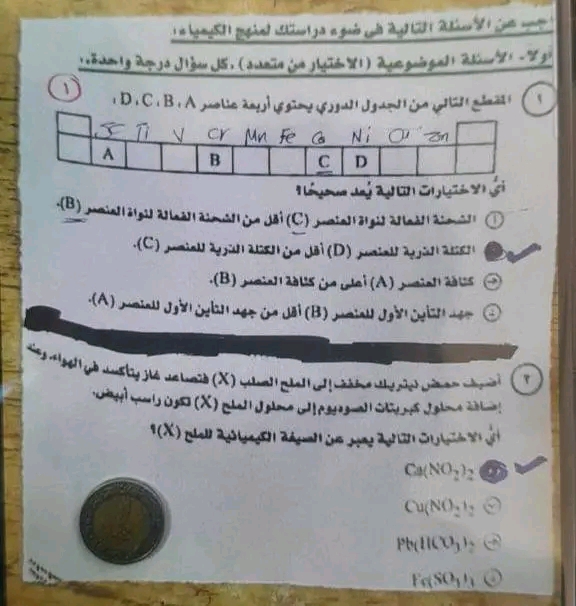 اجب عن الأسئلة التالية فى ضوء دراستك لمنهج الكيمياء:
أولاً - الأسئلة الموضوعية (الاختيار من متعدد). كل سؤال درجة واحدة:
١ المقطع التالي من الجدول الدوري يحتوي أربعة عناصر A، B، C، D: ١
Sc Ti V Cr Mn Fe Co Ni Cu Zn
A B C D
أيُّ الاختيارات التالية يُعد صحيحًا؟
أ الشحنة الفعالة لنواة العنصر (C) أقل من الشحنة الفعالة لنواة العنصر (B).
الكتلة الذرية للعنصر (D) أقل من الكتلة الذرية للعنصر (C).
ج كثافة العنصر (A) أعلى من كثافة العنصر (B).
د جهد التأين الأول للعنصر (B) أقل من جهد التأين الأول للعنصر (A).
٢ أضيف حمض نيتريك مخفف إلى الملح الصلب (X) فتصاعد غاز يتأكسد في الهواء، وعند
إضافة محلول كبريتات الصوديوم إلى محلول الملح (X) تكون راسب أبيض.
أيُّ الاختيارات التالية يعبر عن الصيغة الكيميائية للملح (X)؟
Ca(NO₂)₂
Cu(NO₂)₂ ب
Pb(HCO₃)₂ ج